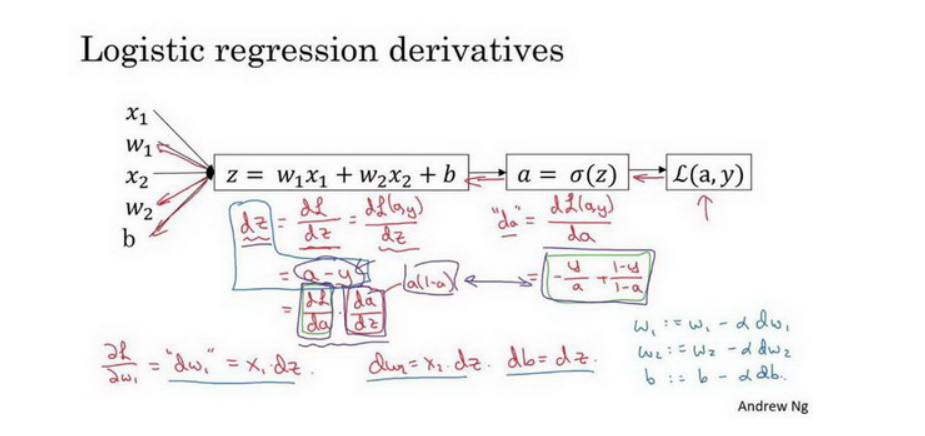 Logistic regression derivatives
x₁
w₁
x₂
w₂
b
z = w₁x₁ + w₂x₂ + b
a = σ(z)
ℒ(a, y)
dz = dℒ/dz = dℒ(a,y)/dz
"da" = dℒ(a,y)/da
= a - y
a(1-a)
= -y/a + 1-y/1-a
= dℒ/da · da/dz
∂ℒ/∂w₁ = "dw₁" = x₁·dz.
dw₂ = x₂·dz. db = dz.
w₁ := w₁ - α dw₁
w₂ := w₂ - α dw₂
b := b - α db.
Andrew Ng